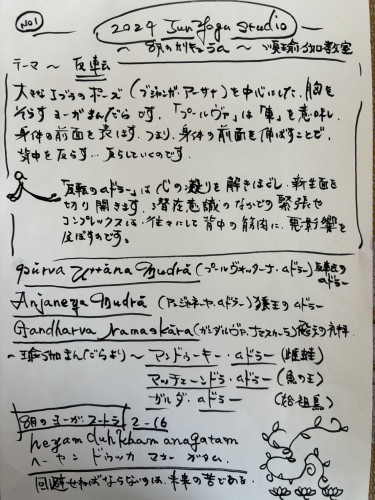 No1
2024 Jun Yoga Studio
〜 8月のカリキュラム 〜 瑜伽教室
テーマ 〜 反転
大きなコブラのポーズ (ブジャンガ・アーサナ) を中心にした、胸を
そらすヨーガまんだらです。「プールヴァ」は「東」を意味し、
身体の前面を表はす。つまり、身体の前面を伸ばすことで、
背中を反らす‥反らしていくのです。
「反転のムドラー」は心の凝りを解きほぐし、新生面を
切り開きます。潜在意識のなかでの緊張や
コンプレックスは、往々にして背中の筋肉に、悪影響を
及ぼすのです。
pūrva Uttāna Mudrā (プールヴォッターナ・ムドラー) 反転のムドラー
Anjaneya Mudrā (アンジャネーヤ・ムドラー) 猿王のムドラー
Gandharva Namaskāra (ガンダルヴァ・ナマスカーラ) の礼拝
〜 瑜伽まんだらより 〜 マンドゥーキー・ムドラー (雌蛙)
マッチェーンドラ・ムドラー (魚の王)
ガルダ・ムドラー
8月のヨーガスートラ 2-16
heyam duhkham anagatam
ヘーヤン ドゥッカ マナーガタム
回避せねばならないのは、未来の苦である。